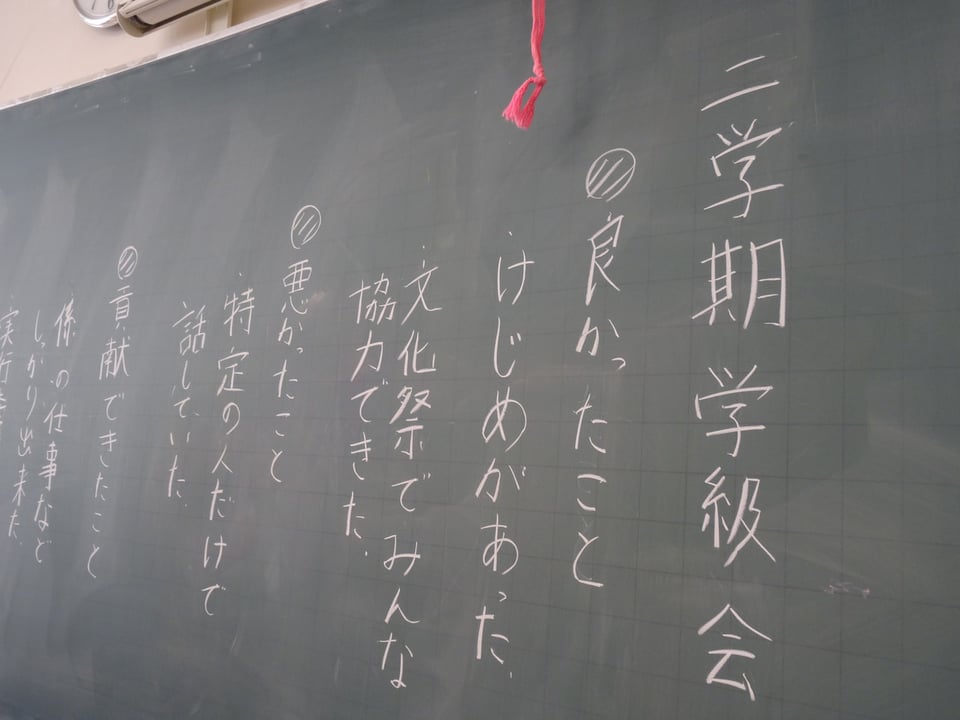 二学期 学級会
良かったこと
・けじめがあった。
・文化祭でみんな
協力できた。
悪かったこと
・特定の人だけで
話していた。
貢献できたこと
・係の仕事など
しっかり出来た。